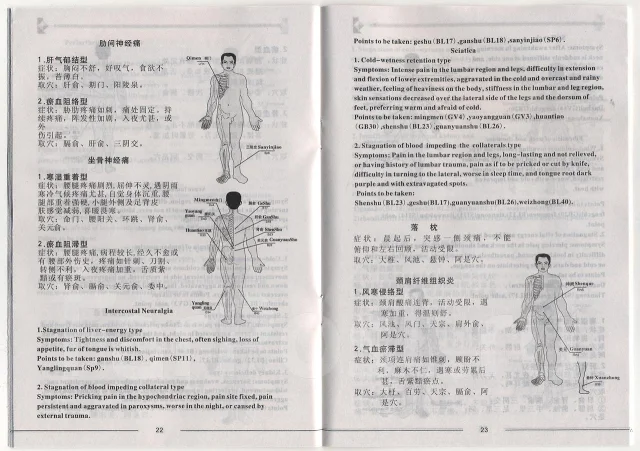 肋间神经痛
1.肝气郁结型
症状：胸闷不舒，好叹气，食欲不
振，苔薄白。
取穴：肝俞、期门、阳陵泉。
2.瘀血阻络型
症状：胁肋疼痛如刺，痛处固定，持
续疼痛，阵发性加剧，入夜尤甚，或
外
伤引起。
取穴：膈俞、肝俞、三阴交。
坐骨神经痛
1.寒湿重着型
症状：腰腿疼痛剧烈,屈伸不灵,遇阴雨
寒冷气候疼痛尤甚,自觉身体沉重,腰
腿部重着强硬,小腿外侧及足背皮
肤感觉减弱,喜暖畏寒。
取穴：命门、腰阳关、环跳、肾俞、
关元俞。
2.瘀血阻滞型
症状：腰腿疼痛,病程较长,经久不愈或
有腰部外伤史，疼痛如针刺、刀割，
转侧不利，入夜疼痛加重，舌质紫
黯或有瘀斑。
取穴：肾俞、膈俞、关元俞、委中。
Intercostal Neuralgia
1.Stagnation of liver-energy type
Symptoms: Tightness and discomfort in the chest, often sighing, loss of
appetite, fur of tongue is whitish.
Points to be taken: ganshu (BL18) , qimen (SP11) ,
Yanglingquan (Sp9) .
2. Stagnation of blood impeding collateral type
Symptoms: Pricking pain in the hypochondriac region, pain site fixed, pain
persistent and aggravated in paroxysms, worse in the night, or caused by
external trauma.
Qimen 期门
三阴交 Sanyinjiao
Mingmen命门
Yaoyang
guan
Huantiao环跳
膈俞 GeShu
肝俞 GanShu
肾俞 ShenShu
关元俞 GuanyuanShu
Yangling
quan
委中 Weizhong
22
Points to be taken: geshu (BL17) ,ganshu (BL18) ,sanyinjiao (SP6) .
Sciatica
1. Cold-wetness retention type
Symptoms: Intense pain in the lumbar region and legs, difficulty in extension
and flexion of lower extremities, aggravated in the cold and overcast and rainy
weather, feeling of heaviness on the body, stiffness in the lumbar and leg region,
skin sensations decreased over the lateral side of the legs and the dorsum of
feet, preferring warm and afraid of cold.
Points to be taken: mingmen (GV4) ,yaoyangguan (GV3) ,huantiao
(GB30) ,shenshu (BL23) ,guanyuanshu (BL26) .
2. Stagnation of blood impeding the collaterals type
Symptoms: Pain in the lumbar region and legs, long-lasting and not relieved,
or having history of lumbar trauma, pain as if to be pricked or cut by knife,
difficulty in turning to the lateral, worse in sleep time, and tongue root dark
purple and with extravagated spots.
Points to be taken:
Shenshu (BL23) ,geshu(BL17),guanyuanshu(BL26),weizhong(BL40).
落 枕
症状：晨起后，突感一侧颈痛，不能
俯仰和左右回顾，活动受限。
取穴：大椎、风池、悬钟、阿是穴。
颈肩纤维组织炎
1.风寒侵络型
症状：颈肩酸痛连背，活动受限，遇
寒加重，得温则舒。
取穴：风池、风门、天宗、肩外俞、
阿是穴。
2.气血瘀滞型
症状：颈项连肩痛如锥刺，顾盼不
利，麻木不仁，遇寒或劳累后
甚，舌紫黯瘀点。
取穴：大杼、百劳、天宗、膈俞、阿
是穴。
神阙 Shenque
关元 Guanyuan
悬钟 Xuanzhong
23